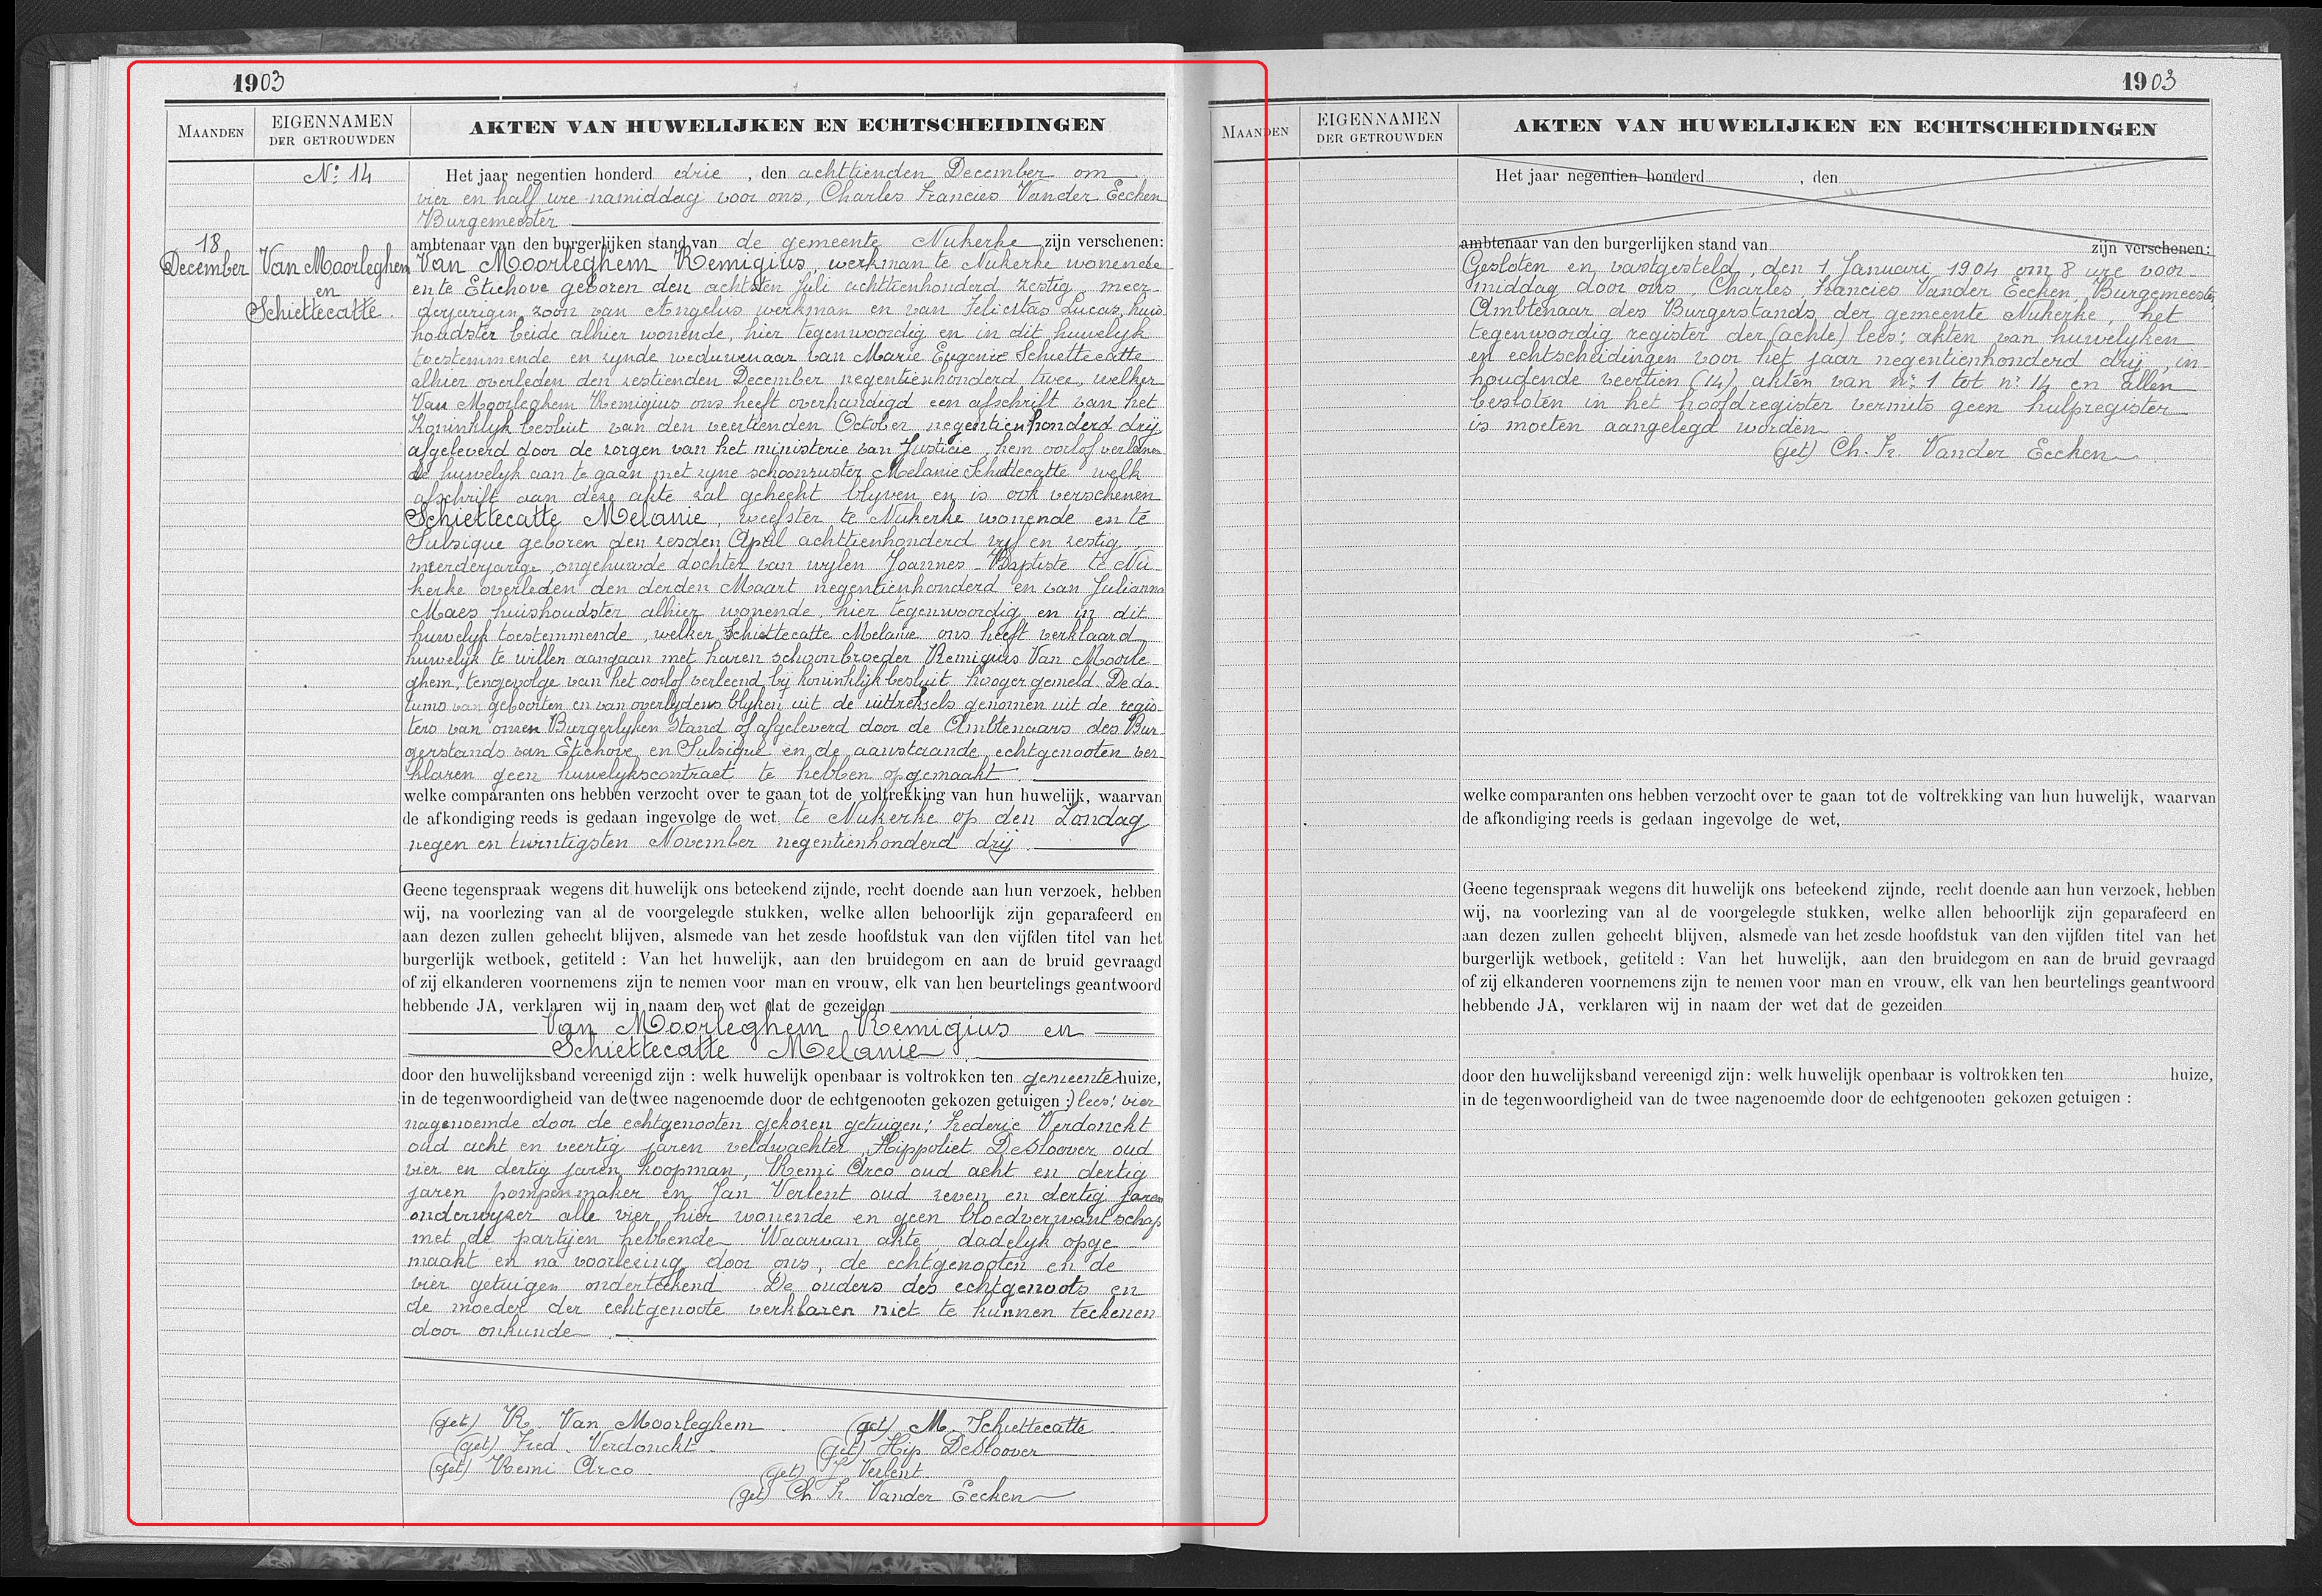 1903
MAANDEN
EIGENNAMEN
DER GETROUWDEN
AKTEN VAN HUWELIJKEN EN ECHTSCHEIDINGEN
N° 14
18
December
Van Moorleghem
en
Schiettecatte.
Het jaar negentien honderd drie, den achttienden December om
vier en half ure namiddag voor ons, Charles Francies Vander Eecken
Burgemeester
ambtenaar van den burgerlijken stand van de gemeente Nukerke zijn verschenen:
Van Moorleghem Remigius, werkman te Nukerke wonende
en te Etichove geboren den achtsten Juli achttienhonderd zestig, meer-
derjarigen zoon van Angelus werkman en van Felicitas Lucas, huis
houdster beide alhier wonende, hier tegenwoordig en in dit huwelyk
toestemmende en zynde weduwenaar van Marie Eugenie Schiettecatte
alhier overleden den zestienden December negentienhonderd twee, welker
Van Moorleghem Remigius ons heeft overhandigd een afschrift van het
Koninklyk besluit van den veertienden October negentienhonderd drij
afgeleverd door de zorgen van het ministerie van Justicie, hem oorlof verleenen
de huwelyk aan te gaan met zyne schoonzuster Melanie Schiettecatte welk
afschrift aan deze akte zal gehecht blyven en is ook verschenen
Schiettecatte Melanie, weefster te Nukerke wonende en te
Sulsique geboren den zesden April achttienhonderd vyf en zestig,
meerderjarige, ongehuwde dochter van wylen Joannes-Baptiste te Nu-
kerke overleden den derden Maart negentienhonderd en van Julianna
Maes huishoudster alhier wonende, hier tegenwoordig en in dit
huwelyk toestemmende, welker Schiettecatte Melanie ons heeft verklaard
huwelyk te willen aangaan met haren schoonbroeder Remigius Van Moorle-
ghem, tengevolge van het oorlof verleend bij koninklijk besluit hooger gemeld. De da-
tums van geboorten en van overlydens blyken uit de uittreksels genomen uit de regis-
ters van onzen Burgerlyken Stand of afgeleverd door de Ambtenaars des Bur-
gerstands van Etichove en Sulsique en de aanstaande echtgenooten ver-
klaren geen huwelykscontract te hebben opgemaakt.
welke comparanten ons hebben verzocht over te gaan tot de voltrekking van hun huwelijk, waarvan
de afkondiging reeds is gedaan ingevolge de wet, te Nukerke op den Zondag
negen en twintigsten November negentienhonderd drij.
Geene tegenspraak wegens dit huwelijk ons beteekend zijnde, recht doende aan hun verzoek, hebben
wij, na voorlezing van al de voorgelegde stukken, welke allen behoorlijk zijn geparafeerd en
aan dezen zullen gehecht blijven, alsmede van het zesde hoofdstuk van den vijfden titel van het
burgerlijk wetboek, getiteld : Van het huwelijk, aan den bruidegom en aan de bruid gevraagd
of zij elkanderen voornemens zijn te nemen voor man en vrouw, elk van hen beurtelings geantwoord
hebbende JA, verklaren wij in naam der wet dat de gezeiden
Van Moorleghem Remigius en
Schiettecatte Melanie
door den huwelijksband vereenigd zijn : welk huwelijk openbaar is voltrokken ten gemeentehuize,
in de tegenwoordigheid van de (twee nagenoemde door de echtgenooten gekozen getuigen :) lees: vier
nagenoemde door de echtgenooten gekozen getuigen: Frederic Verdonckt
oud acht en veertig jaren veldwachter, Hippoliet DeSloover oud
vier en dertig jaren koopman, Remi Arco oud acht en dertig
jaren pompenmaker en Jan Verlent oud zeven en dertig jaren
onderwyzer alle vier hier wonende en geen bloedverwantschap
met de partijen hebbende. Waarvan akte, dadelyk opge-
maakt en na voorlezing door ons, de echtgenooten en de
vier getuigen onderteekend. De ouders des echtgenoots en
de moeder der echtgenoote verklaren niet te kunnen teekenen
door onkunde.
(get) R. Van Moorleghem. (get) M. Schiettecatte.
(get) Fred. Verdonckt. (get) Hip. DeSloover
(get) Remi Arco. (get) J. Verlent.
(get) Ch. Fr. Vander Eecken
1903
MAANDEN
EIGENNAMEN
DER GETROUWDEN
AKTEN VAN HUWELIJKEN EN ECHTSCHEIDINGEN
Het jaar negentien honderd , den
ambtenaar van den burgerlijken stand van zijn verschenen:
Gesloten en vastgesteld, den 1 Januari 1904 om 8 ure voor-
middag door ons, Charles Francies Vander Eecken, Burgemeester,
Ambtenaar des Burgerstands der gemeente Nukerke, het
tegenwoordig register der (achte) lees: akten van huwelyken
en echtscheidingen voor het jaar negentienhonderd drij, in-
houdende veertien (14) akten van n° 1 tot n° 14 en allen
besloten in het hoofdregister vermits geen hulpregister
is moeten aangelegd worden.
(get) Ch. Fr. Vander Eecken
welke comparanten ons hebben verzocht over te gaan tot de voltrekking van hun huwelijk, waarvan
de afkondiging reeds is gedaan ingevolge de wet,
Geene tegenspraak wegens dit huwelijk ons beteekend zijnde, recht doende aan hun verzoek, hebben
wij, na voorlezing van al de voorgelegde stukken, welke allen behoorlijk zijn geparafeerd en
aan dezen zullen gehecht blijven, alsmede van het zesde hoofdstuk van den vijfden titel van het
burgerlijk wetboek, getiteld : Van het huwelijk, aan den bruidegom en aan de bruid gevraagd
of zij elkanderen voornemens zijn te nemen voor man en vrouw, elk van hen beurtelings geantwoord
hebbende JA, verklaren wij in naam der wet dat de gezeiden
door den huwelijksband vereenigd zijn : welk huwelijk openbaar is voltrokken ten huize,
in de tegenwoordigheid van de twee nagenoemde door de echtgenooten gekozen getuigen :